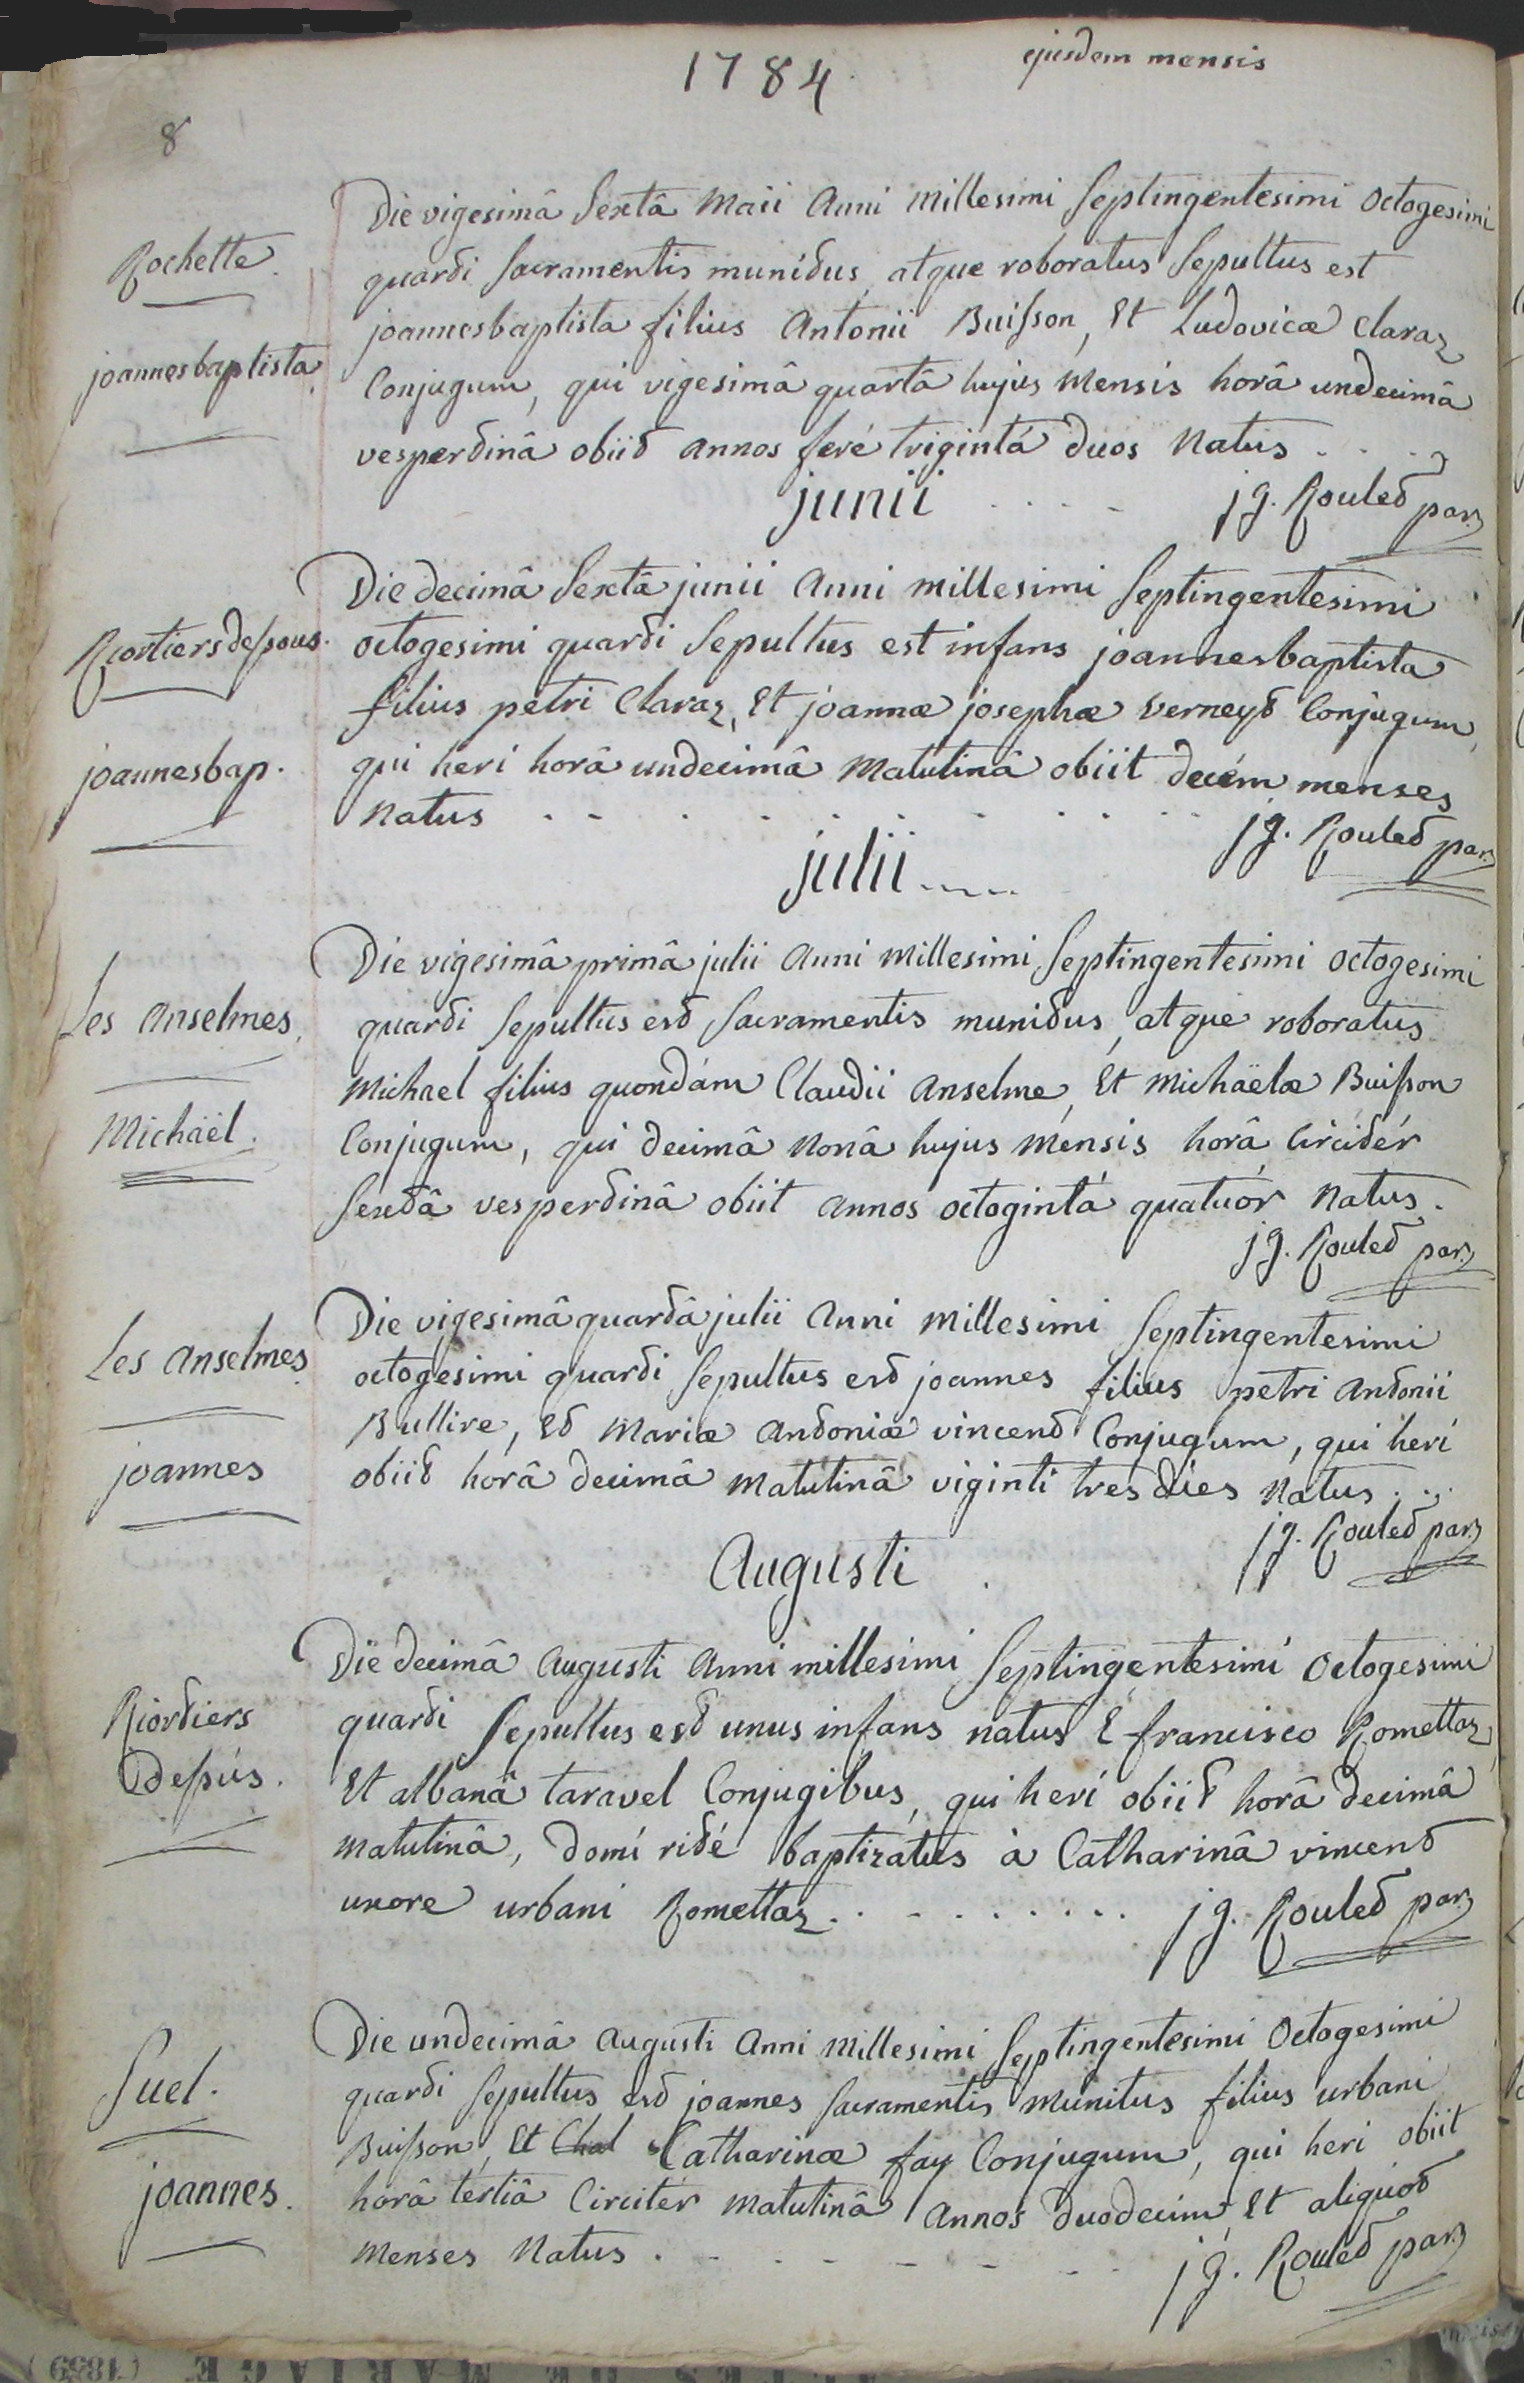 1784
ejusdem mensis
8
Rochette
joannesbaptista
Die vigesimâ Sextâ Maii Anni Millesimi Septingentesimi Octogesimi
quarti Sacramentis munitus, atque roboratus Sepultus est
joannesbaptista filius Antonii Buisson, Et Ludovicæ Claraz
Conjugum, qui vigesimâ quartâ hujus Mensis horâ undecimâ
vespertinâ obiit annos feré trigintá duos Natus . . .
junii . . . .
jg. Roulet par.
Riortiers dessous.
joannesbap.
Die decimâ Sextâ junii Anni millesimi Septingentesimi
octogesimi quarti Sepultus est infans joannesbaptista
filius petri Claraz, Et joannæ josephæ Verneyt Conjugum,
qui heri horâ undecimâ Matutinâ obiit decém menses
Natus . . . . . . . . . .
jg. Roulet par.
julii . . . .
Les Anselmes.
Michäel.
Die vigesimâ primâ julii Anni Millesimi Septingentesimi octogesimi
quarti Sepultus est Sacramentis munitus, atque roboratus
Michael filius quondám Claudii Anselme, Et Michäelæ Buisson
Conjugum, qui decimâ Nonâ hujus Mensis horâ Circitér
Sextâ vespertinâ obiit annos octogintá quatuór Natus.
jg. Roulet par.
Les Anselmes
joannes
Die vigesimâ quartâ julii Anni Millesimi Septingentesimi
octogesimi quarti Sepultus est joannes filius petri Antonii
Bullire, Et Mariæ Antoniæ vincent Conjugum, qui heri
obiit horâ decimâ Matutinâ viginti tres dies Natus . . .
jg. Roulet par.
Augusti
Riortiers
Dessús.
Die decimâ Augusti Anni millesimi Septingentesimi Octogesimi
quarti Sepultus est unus infans natus È francisco Romettaz,
Et albanâ taravel Conjugibus, qui heri obiit horâ decimâ
Matutinâ, domí rité baptizatus à Catharinâ vincent
uxore urbani Romettaz . . . . . . . .
jg. Roulet par.
Suel.
joannes.
Die undecimâ Augusti Anni Millesimi Septingentesimi Octogesimi
quarti Sepultus est joannes Sacramentis Munitus filius urbani
Buisson, Et Chal Catharinæ fay Conjugum, qui heri obiit
horâ tertiâ Circitér Matutinâ Annos duodecim, Et aliquot
Menses Natus . . . . . . .
jg. Roulet par.
ACTES DE MARIAGE (1839)